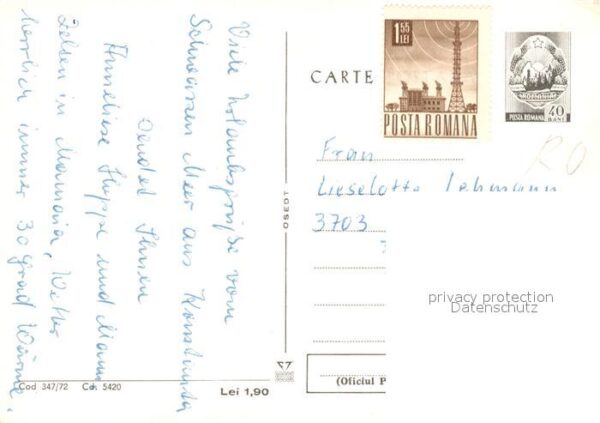 Viele Urlaubsgrüße vom
Schwarzen Meer aus Konstanza
sendet Ihnen
Anneliese Huppe und Mann
Zelten in Mamaia, Wetter
herrlich immer 30 Grad Wärme.
Cod 347/72 Cd. 5420
Lei 1,90
OSEDT
CARTE
1 55
LEI
POSTA ROMANA
POSTA ROMANA 40
BANI
RO
Frau
Lieselotte Lehmann
3703
privacy protection
Datenschutz
(Oficiul P